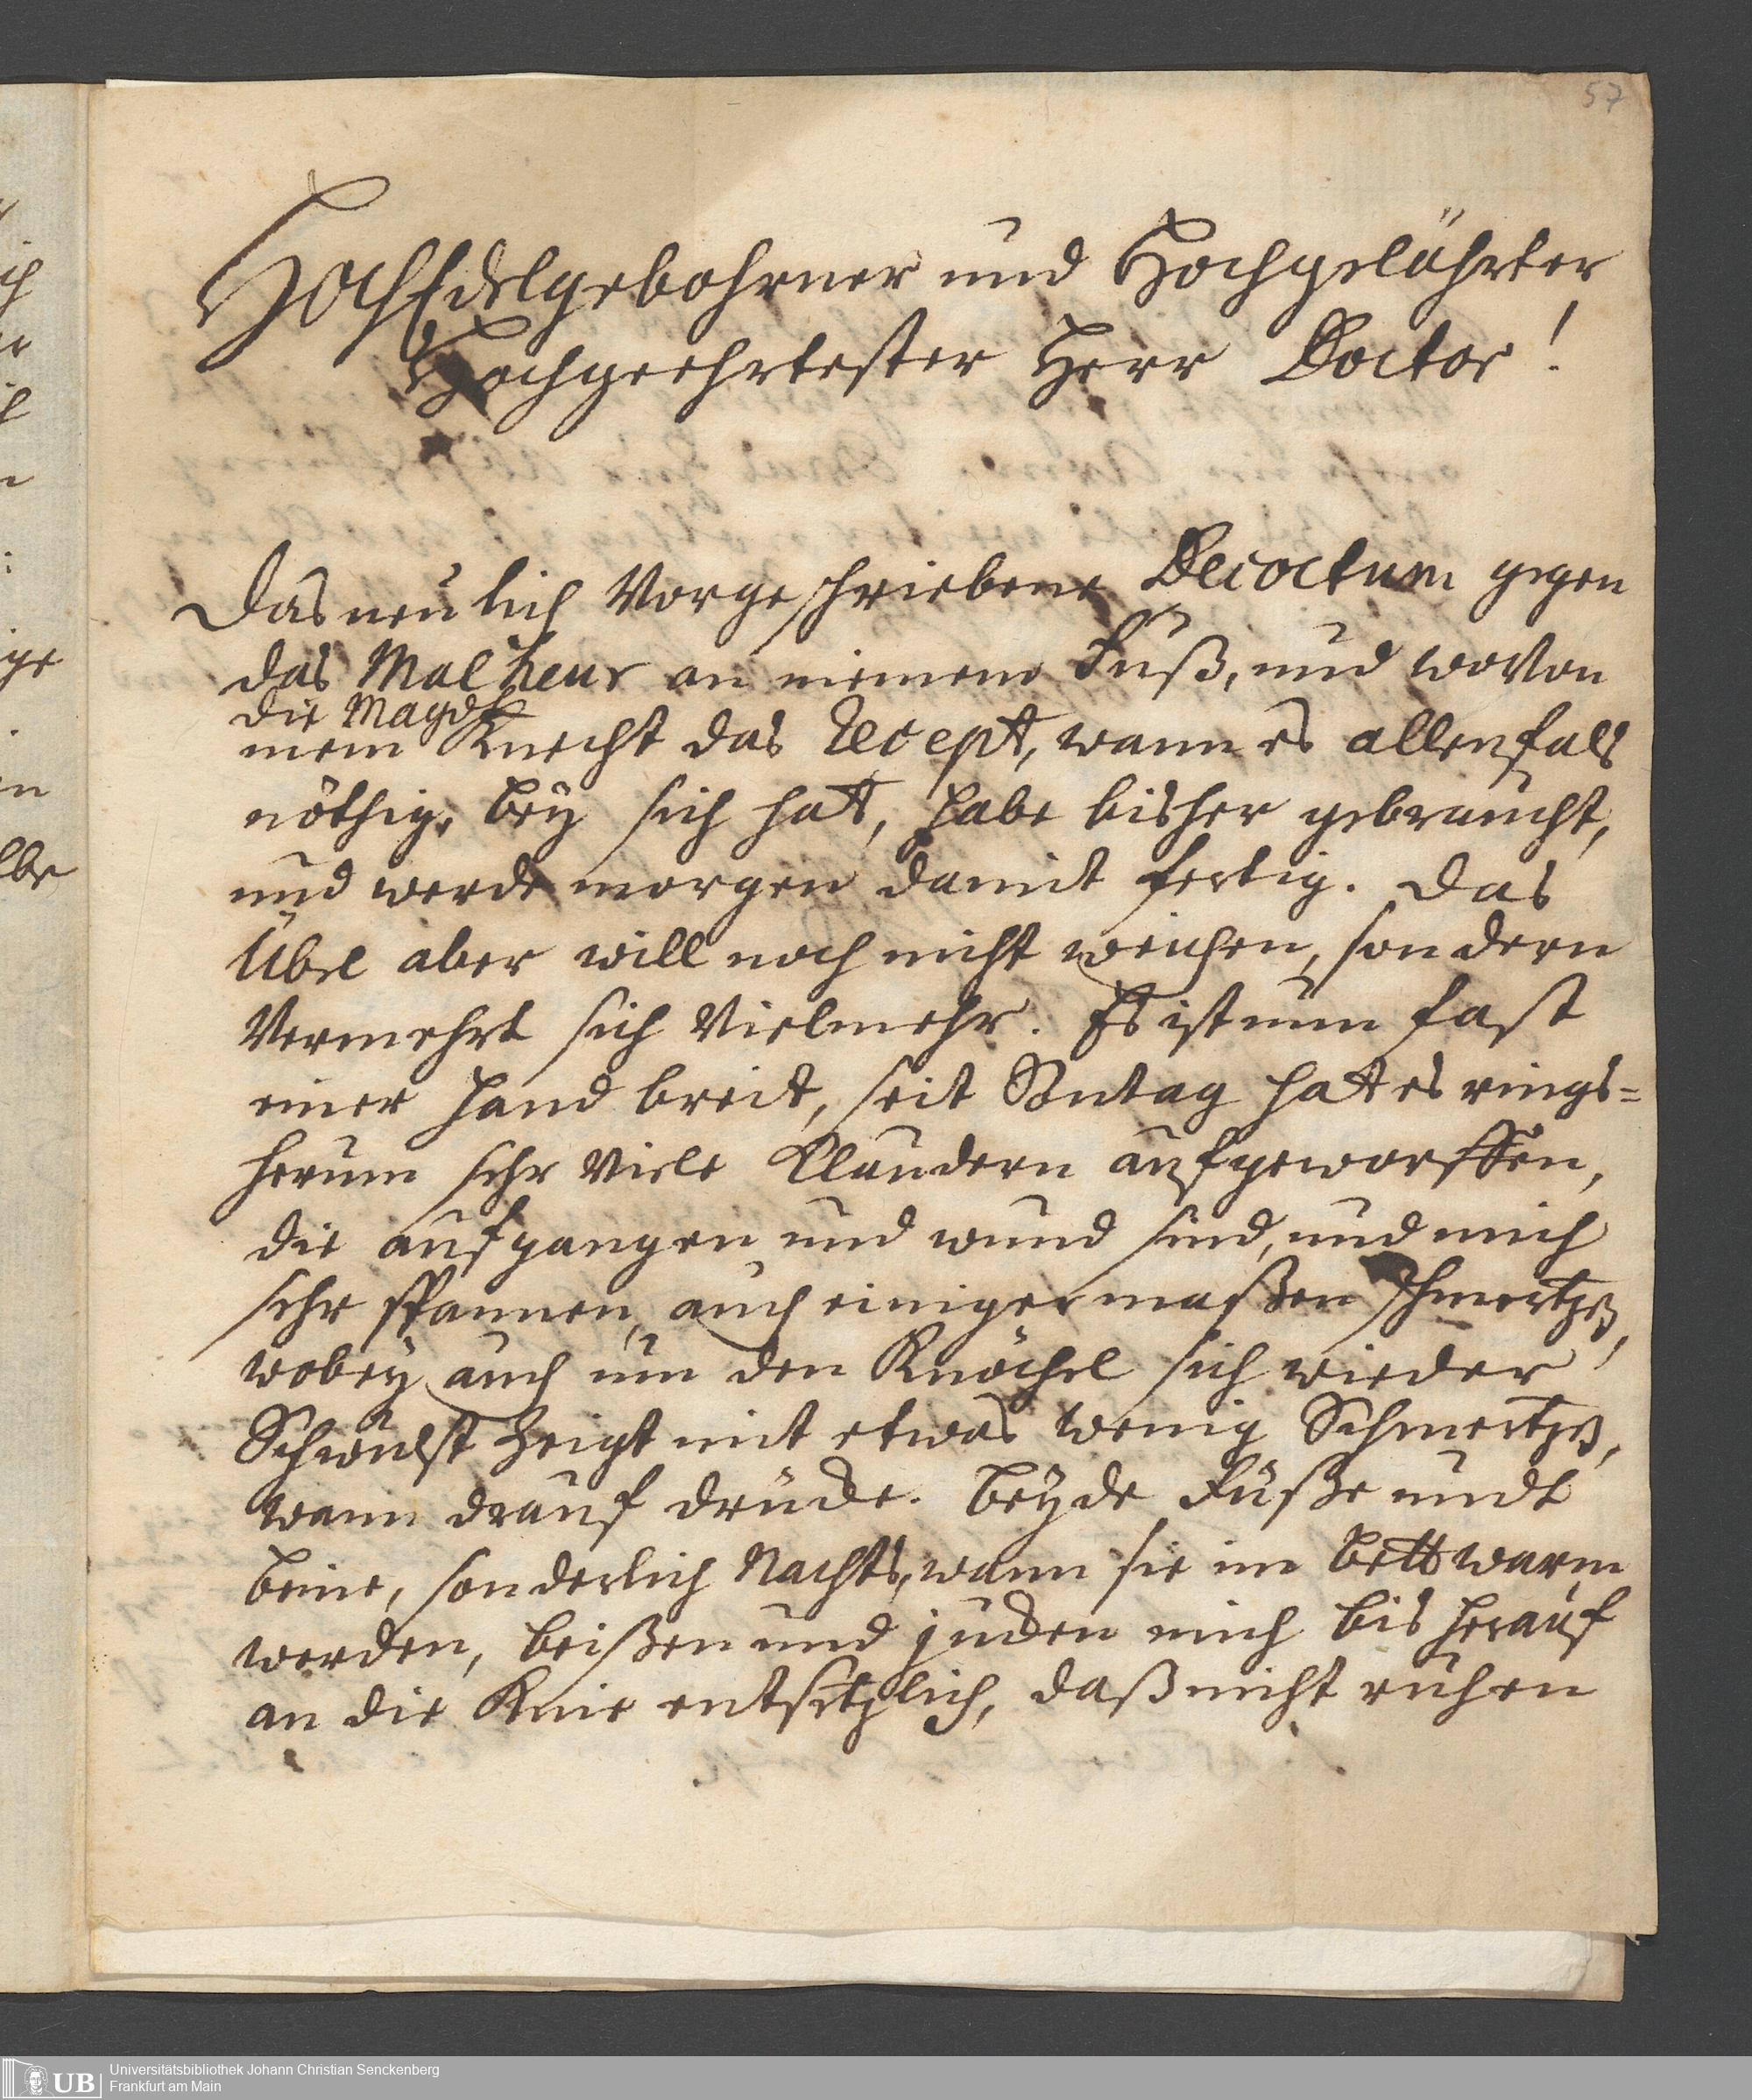 57
HochEdelgebohrner und Hochgelährter
Hochgeehrtester Herr Doctor!
Das neulich Vorgeschriebene Decoctum gegen
das Malheur an meinem Fuß, und woVon
die Magdt
mein Knecht das Recept, wann es allenfals
nöthig, bey sich hat, habe bisher gebraucht,
und werde morgen damit fertig. Das
Übel aber will noch nicht weichen, sondern
Vermehrt sich Vielmehr. Es ist nun fast
einer Hand breit, seit Sontag hat es rings=
herum sehr Viele Blaudern aufgeworffen,
die aufgangen und wund sind, und mich
sehr spannen, auch einigermaßen schmertzen,
wobey auch um den Knöchel sich wieder
Schwulst zeigt mit etwas wenig Schmertzen,
wann drauf drücke. Beyde Füße undt
Beine, sonderlich Nachts, wann sie im Bett warm
werden, beißen und jucken mich bis herauf
an die Knie entsetzlich, daß nicht ruhen
ge
lbe
UB
Universitätsbibliothek Johann Christian Senckenberg
Frankfurt am Main